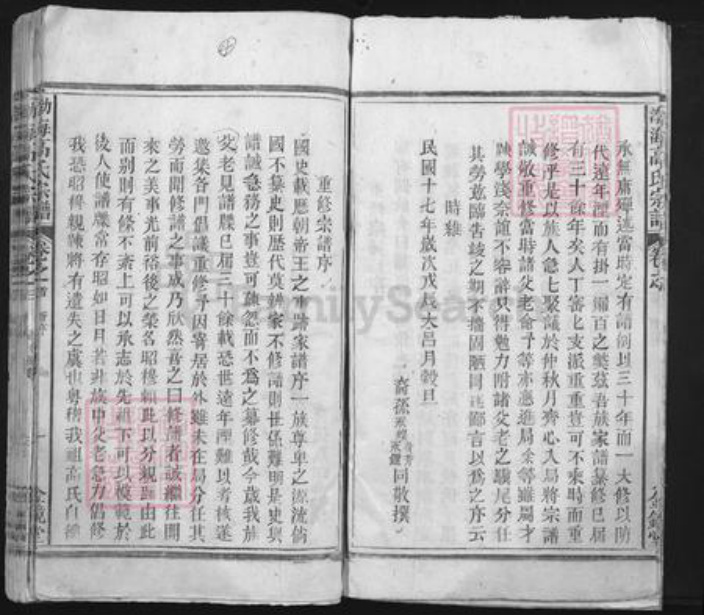 渤海高氏宗譜
承無庸殫述當時定有譜例以三十年而一大修以防
代遠年湮而有掛一漏百之獘茲吾族家譜纂修已屆
有三十餘年矣人丁審七支派重重豈可不乘時而重
修乎是以族人急七聚議於仲秋月齊心入局將宗譜
誠敬重修當時諸父老命予等亦應進局余等雖屬才
疎學淺奈誼不容辭只得勉力附諸父老之驥尾分任
其勞竟臨告竣之期不揣固陋同述鄙言以為之序云
時維
民國十七年歲次戊辰大呂月穀旦
裔孫
同敬撰
重修宗譜序
國史載歷朝帝王之事跡家譜序一族尊卑之源流倘
國不纂史則歷代莫辨家不修譜則世係難明是史與
譜誠急務之事豈可疎忽而不為之纂修哉今歲我族
父老見譜牒已屆三十餘載恐世遠年湮難以考核遂
邀集各門倡議重修予因寄居於外雖未在局分任其
勞而聞修譜之事成乃欣然喜之曰修譜者誠繼往開
來之美事光前裕後之榮名昭穆賴此以分親疎由此
而別則有條不紊上可以承志於先祖下可以模範於
後人使譜牒常存昭如日月若非族中父老急力倡修
我恐昭穆親疎將有遺失之虞也粵稽我祖高氏自
渤海高氏宗譜
卷之
FamilySearch